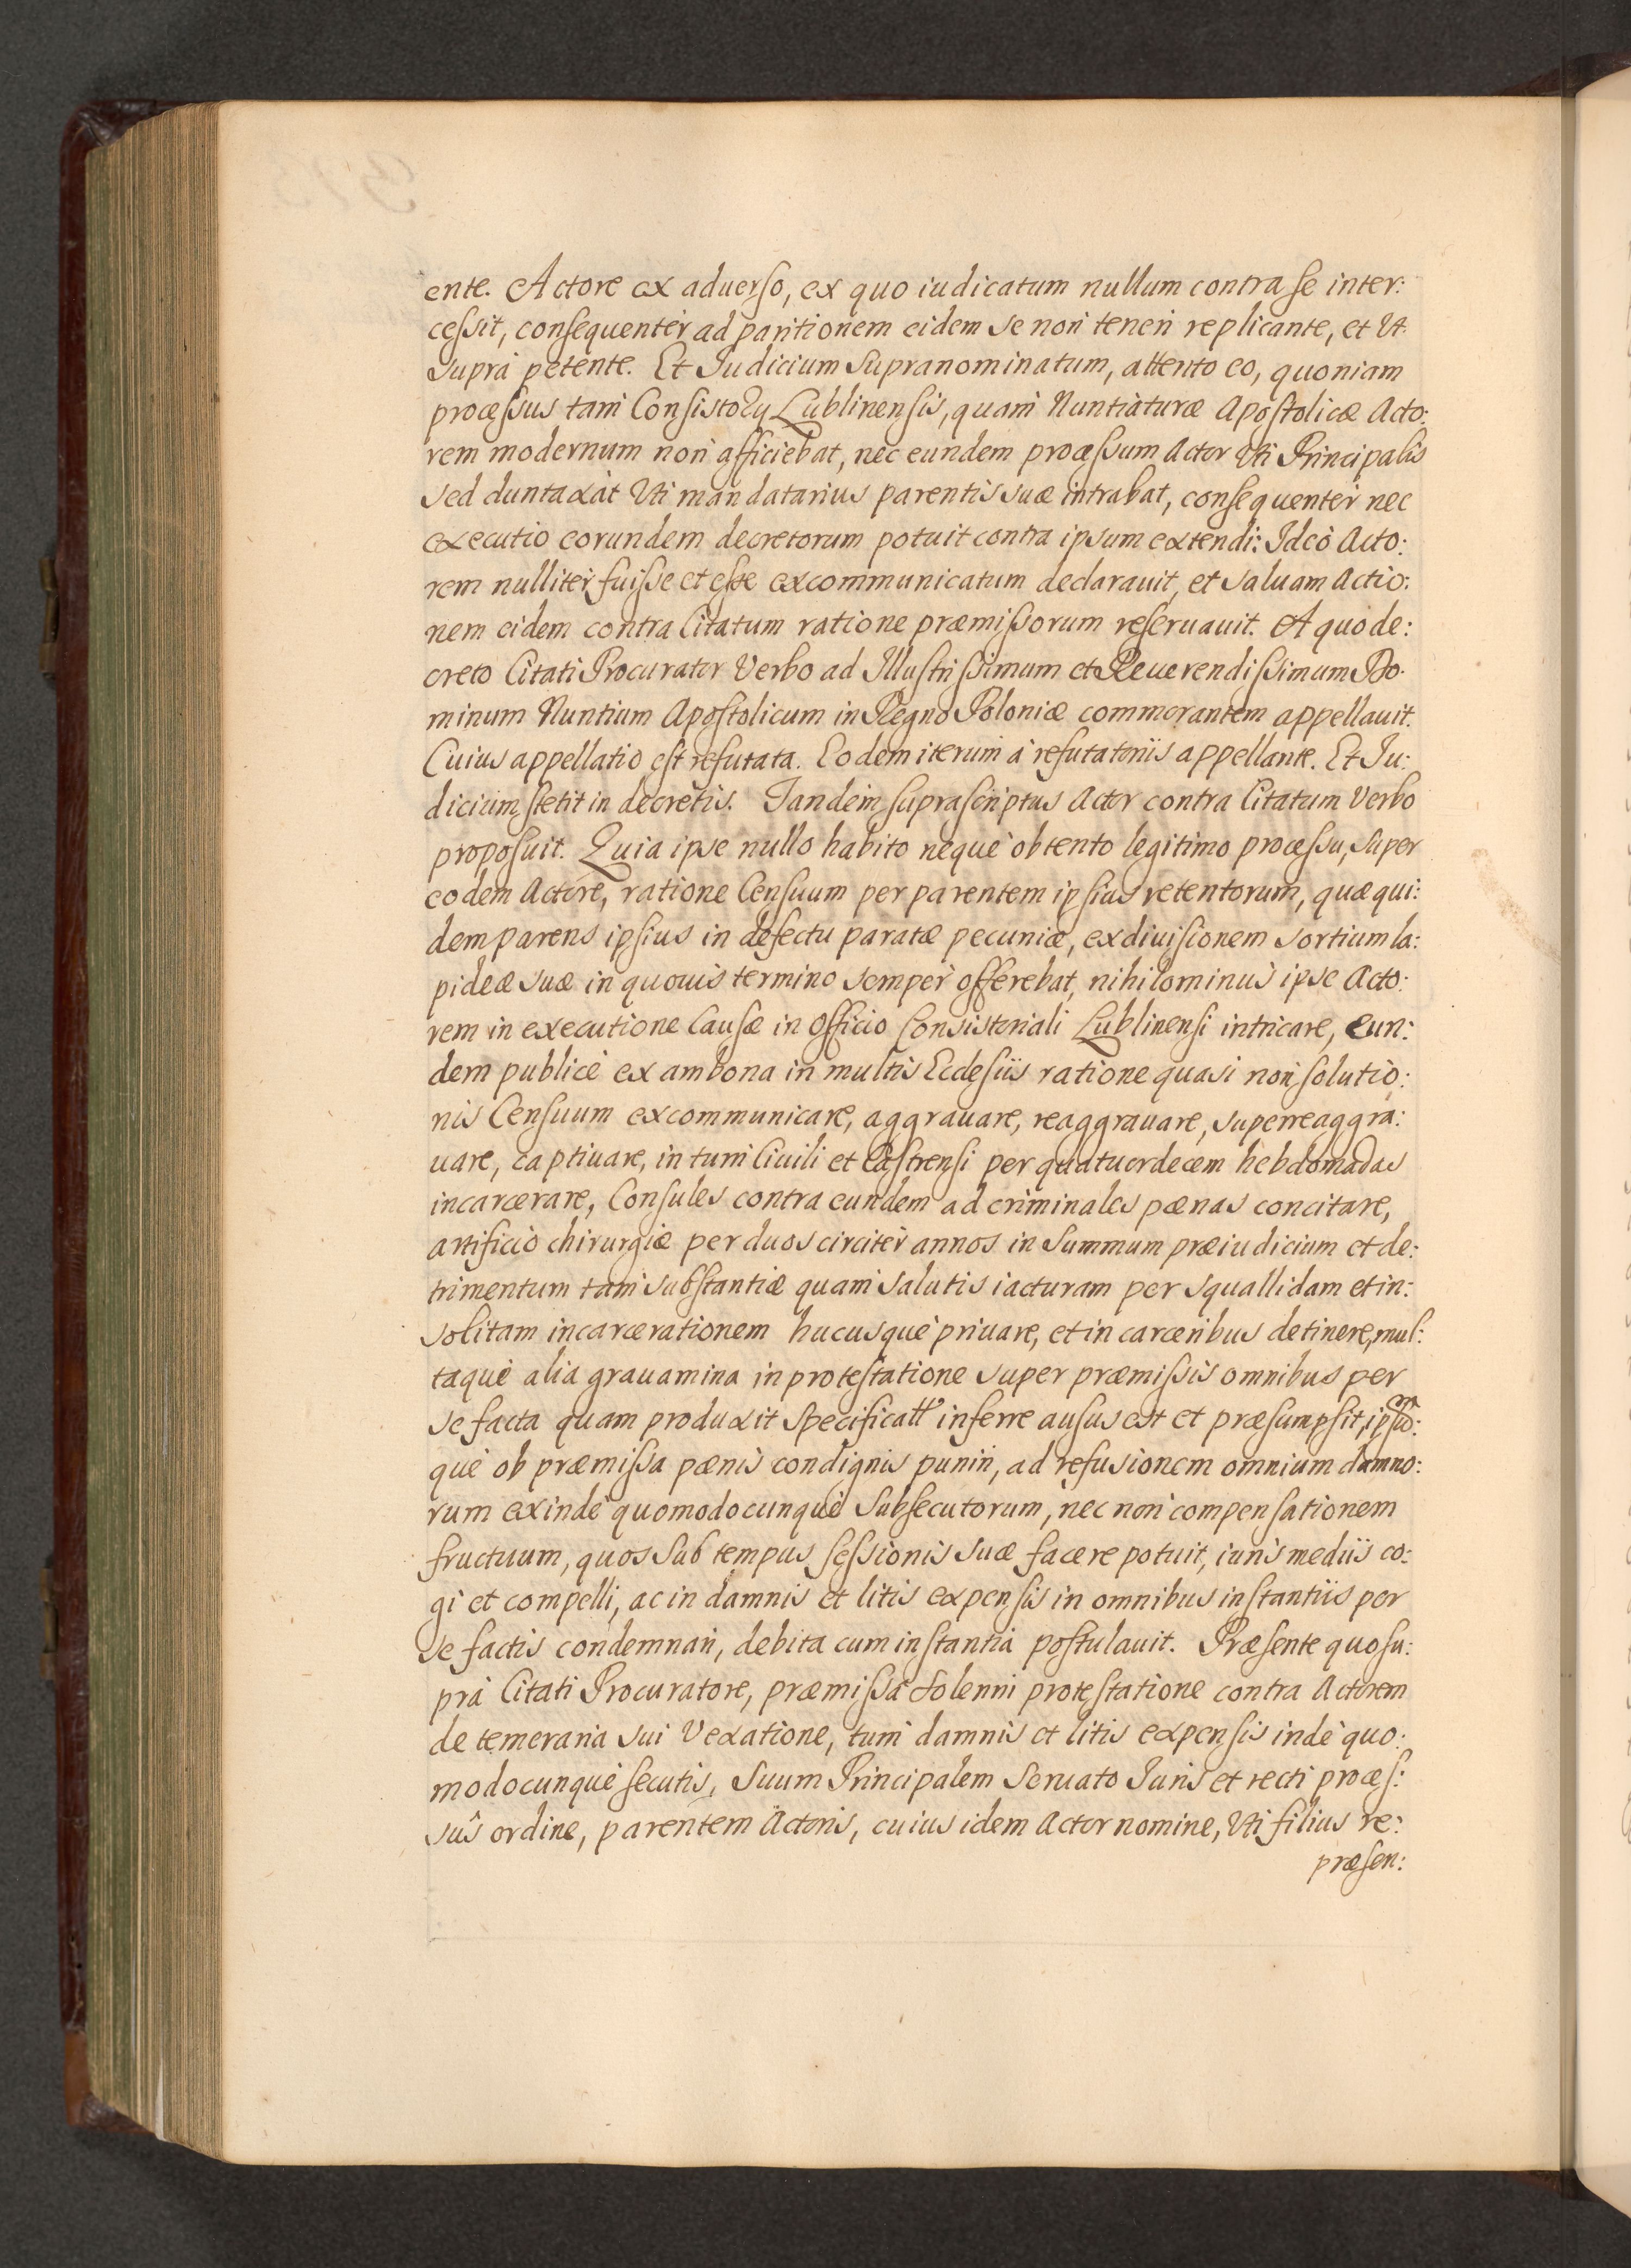 ente. Actore ex aduerso, ex quo iudicatum nullum contra se inter:
cessit, consequentèr ad paritionem eidem se non teneri replicante, et Vt
suprà petente. Et Iudicium supranominatum, attento eo, quoniam
processus tam Consistorij Lublinensis, quam Nuntiaturæ Apostolicæ Acto:
rem modernum non afficiebat, nec eundem processum Actor Vti Principalis
sed duntaxàt Vti mandatarius parentis suæ intrabat, consequentèr nec
executio eorundem decretorum potuit contra ipsum extendi: Ideò Acto:
rem nullitèr fuisse et esse excommunicatum declarauit, et saluam Actio:
nem eidem contra Citatum ratione præmissorum reseruauit. A quo de:
creto Citati Procurator Verbo ad Illustrissimum et Reuerendissimum Do:
minum Nuntium Apostolicum in Regno Poloniæ commorantem appellauit.
Cuius appellatio est refutata. Eodem iterum à refutatorijs appellante. Et Iu:
dicium stetit in decretis. Tandem suprascriptus Actor contra Citatum Verbo
proposuit. Quia ipse nullo habito nequè obtento legitimo processu, super
eodem Actore, ratione Censuum per parentem ipsius retentorum, quæ qui:
dem parens ipsius in defectu paratæ pecuniæ, exdiuisionem sortium la:
pideæ suæ in quouis termino semper offerebat, nihilominus ipse Acto:
rem in executione Causæ in Officio Consistoriali Lublinensi intricare, eun:
dem publicè ex ambona in multis Ecclesijs ratione quasi non solutio:
nis Censuum excommunicare, aggrauare, reaggrauare, superreaggra:
uare, captiuare, in turri Ciuili et Castrensi per quatuordecem hebdomadas
incarcerare, Consules contra eundem ad criminales pœnas concitare,
artificio chirurgiæ per duos circitèr annos in summum præiudicium et de:
trimentum tam substantiæ quam salutis iacturam per squallidam et in:
solitam incarcerationem hucusquè priuare, et in carceribus detinere, mul:
taquè alia grauamina in protestatione super præmissis omnibus per
se facta quam produxit specificatt inferre ausus est et præsumpsit, ipsum:
què ob præmissa pœnis condignis puniri, ad refusionem omnium damno:
rum exindè quomodocunquè subsecutorum, nec non compensationem
fructuum, quos sub tempus sessionis suæ facere potuit, iuris medijs co:
gi et compelli, ac in damnis et litis expensis in omnibus instantijs per
se factis condemnari, debita cum instantia postulauit. Præsente quo su:
prà Citati Procuratore, præmissa solenni protestatione contra Actorem
de temeraria sui Vexatione, tum damnis et litis expensis indè quo:
modocunquè secutis, suum Principalem seruato Iuris et recti proces:
sûs ordine, parentem Actoris, cuius idem Actor nomine, Vti filius re:
præsen: